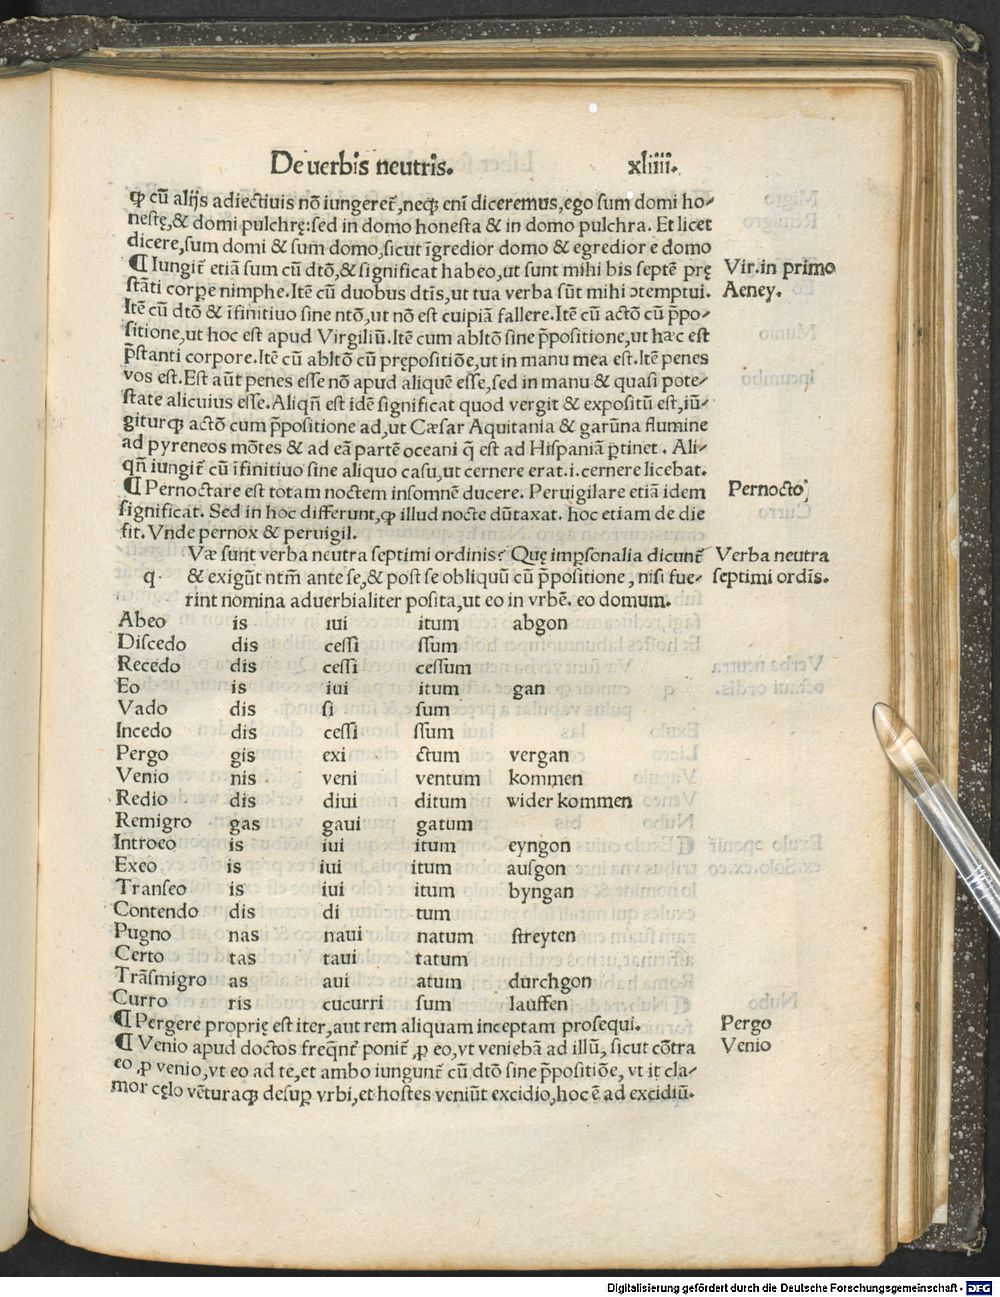 De uerbis neutris. xliiii.
ꝙ cū alijs adiectiuis nō iungeret᷑, neqꝫ eni diceremus, ego sum domi ho⸗
nestę, & domi pulchrę: sed in domo honesta & in domo pulchra. Et licet
dicere, sum domi & sum domo, sicut īgredior domo & egredior e domo
¶ Iungit᷑ etiā sum cū dtō, & significat habeo, ut sunt mihi bis septē prę Vir. in primo
stāti corpe nimphe. Itē cū duobus dtīs, ut tua verba sūt mihi ɔtemptui. Aeney.
Itē cū dtō & īfinitiuo sine ntō, ut nō est cuipiā fallere. Itē cū actō cū p̄po⸗
sitione, ut hoc est apud Virgiliū. Itē cum abltō sine p̄positione, ut hæc est
p̄stanti corpore. Itē cū abltō cū prępositiōe, ut in manu mea est. Itē penes
vos est. Est aūt penes esse nō apud aliquē esse, sed in manu & quasi pote⸗
state alicuius esse. Aliqn̄ est idē significat quod vergit & expositū est, iū⸗
giturqꝫ actō cum p̄positione ad, ut Cæsar Aquitania & garūna flumine
ad pyreneos mōtes & ad eā partē oceani q̄ est ad Hispaniā ꝑtinet. Ali⸗
qn̄ iungit᷑ cū īfinitiuo sine aliquo casu, ut cernere erat .i. cernere licebat.
¶ Pernoctare est totam noctem insomnē ducere. Peruigilare etiā idem Pernocto
significat. Sed in hoc differunt, ꝙ illud nocte dūtaxat. hoc etiam de die Curro
fit. Vnde pernox & peruigil.
Væ sunt verba neutra septimi ordinis? Quę imꝑsonalia dicunt᷑ Verba neutra
q & exigūt ntm̄ ante se, & post se obliquū cū p̄positione, nisi fue⸗ septimi ordīs.
rint nomina aduerbialiter posita, ut eo in vrbē. eo domum.
Abeo is iui itum abgon
Discedo dis cessi ssum
Recedo dis cessi cessum
Eo is iui itum gan
Vado dis si sum
Incedo dis cessi ssum
Pergo gis exi ctum vergan
Venio nis veni ventum kommen
Redio dis diui ditum wider kommen
Remigro gas gaui gatum
Introeo is iui itum eyngon
Exeo is iui itum ausgon
Transeo is iui itum byngan
Contendo dis di tum
Pugno nas naui natum streyten
Certo tas taui tatum
Trāsmigro as aui atum durchgon
Curro ris cucurri sum lauffen
¶ Pergere proprię est iter, aut rem aliquam inceptam prosequi. Pergo
¶ Venio apud doctos freqn̄t᷑ ponit᷑ ꝓ eo, vt veniebā ad illū, sicut cōtra Venio
eo ꝓ venio, vt eo ad te, et ambo iungunt᷑ cū dtō sine p̄positiōe, vt it cla⸗
mor cęlo vēturaqꝫ desuꝑ vrbi, et hostes veniūt excidio, hoc ē ad excidiū.
Digitalisierung gefördert durch die Deutsche Forschungsgemeinschaft - DFG